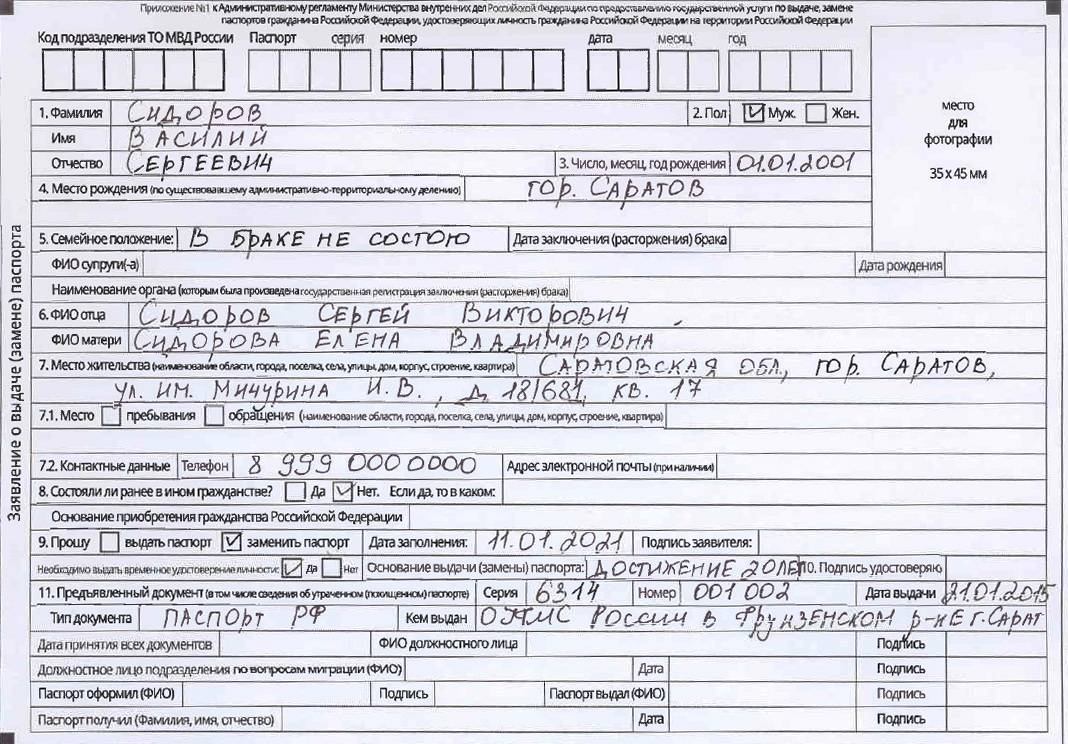 Приложение №1 к Административному регламенту Министерства внутренних дел Российской Федерации по предоставлению государственной услуги по выдаче, замене
паспортов гражданина Российской Федерации, удостоверяющих личность гражданина Российской Федерации на территории Российской Федерации
Код подразделения ТО МВД России Паспорт серия номер дата месяц год
место
для
фотографии
35 x 45 мм
Заявление о выдаче (замене) паспорта
1. Фамилия СИДОРОВ 2. Пол Муж. Жен.
Имя ВАСИЛИЙ
Отчество СЕРГЕЕВИЧ 3. Число, месяц, год рождения 01.01.2001
4. Место рождения (по существовавшему административно-территориальному делению) ГОР. САРАТОВ
5. Семейное положение: В БРАКЕ НЕ СОСТОЮ Дата заключения (расторжения) брака
ФИО супруги(-а) Дата рождения
Наименование органа (которым была произведена государственная регистрация заключения (расторжения) брака)
6. ФИО отца СИДОРОВ СЕРГЕЙ ВИКТОРОВИЧ
ФИО матери СИДОРОВА ЕЛЕНА ВЛАДИМИРОВНА
7. Место жительства (наименование области, города, поселка, села, улицы, дом, корпус, строение, квартира) САРАТОВСКАЯ ОБЛ., ГОР. САРАТОВ,
УЛ. ИМ. МИЧУРИНА И.В., Д. 181/681, КВ. 17
7.1. Место пребывания обращения (наименование области, города, поселка, села, улицы, дом, корпус, строение, квартира)
7.2. Контактные данные Телефон 8 999 000 0000 Адрес электронной почты (при наличии)
8. Состояли ли ранее в ином гражданстве? Да Нет. Если да, то в каком:
Основание приобретения гражданства Российской Федерации
9. Прошу выдать паспорт заменить паспорт Дата заполнения: 11.01.2021 Подпись заявителя:
Необходимо выдать временное удостоверение личности: Да Нет Основание выдачи (замены) паспорта: ДОСТИЖЕНИЕ 20ЛЕТ 10. Подпись удостоверяю
11. Предъявленный документ (в том числе сведения об утраченном (похищенном) паспорте) Серия 6314 Номер 001 002 Дата выдачи 21.01.2015
Тип документа ПАСПОРТ РФ Кем выдан ОУФМС РОССИИ В ФРУНЗЕНСКОМ Р-НЕ Г. САРАТ
Дата принятия всех документов ФИО должностного лица Подпись
Должностное лицо подразделения по вопросам миграции (ФИО) Дата Подпись
Паспорт оформил (ФИО) Подпись Паспорт выдал (ФИО) Подпись
Паспорт получил (Фамилия, имя, отчество) Дата Подпись